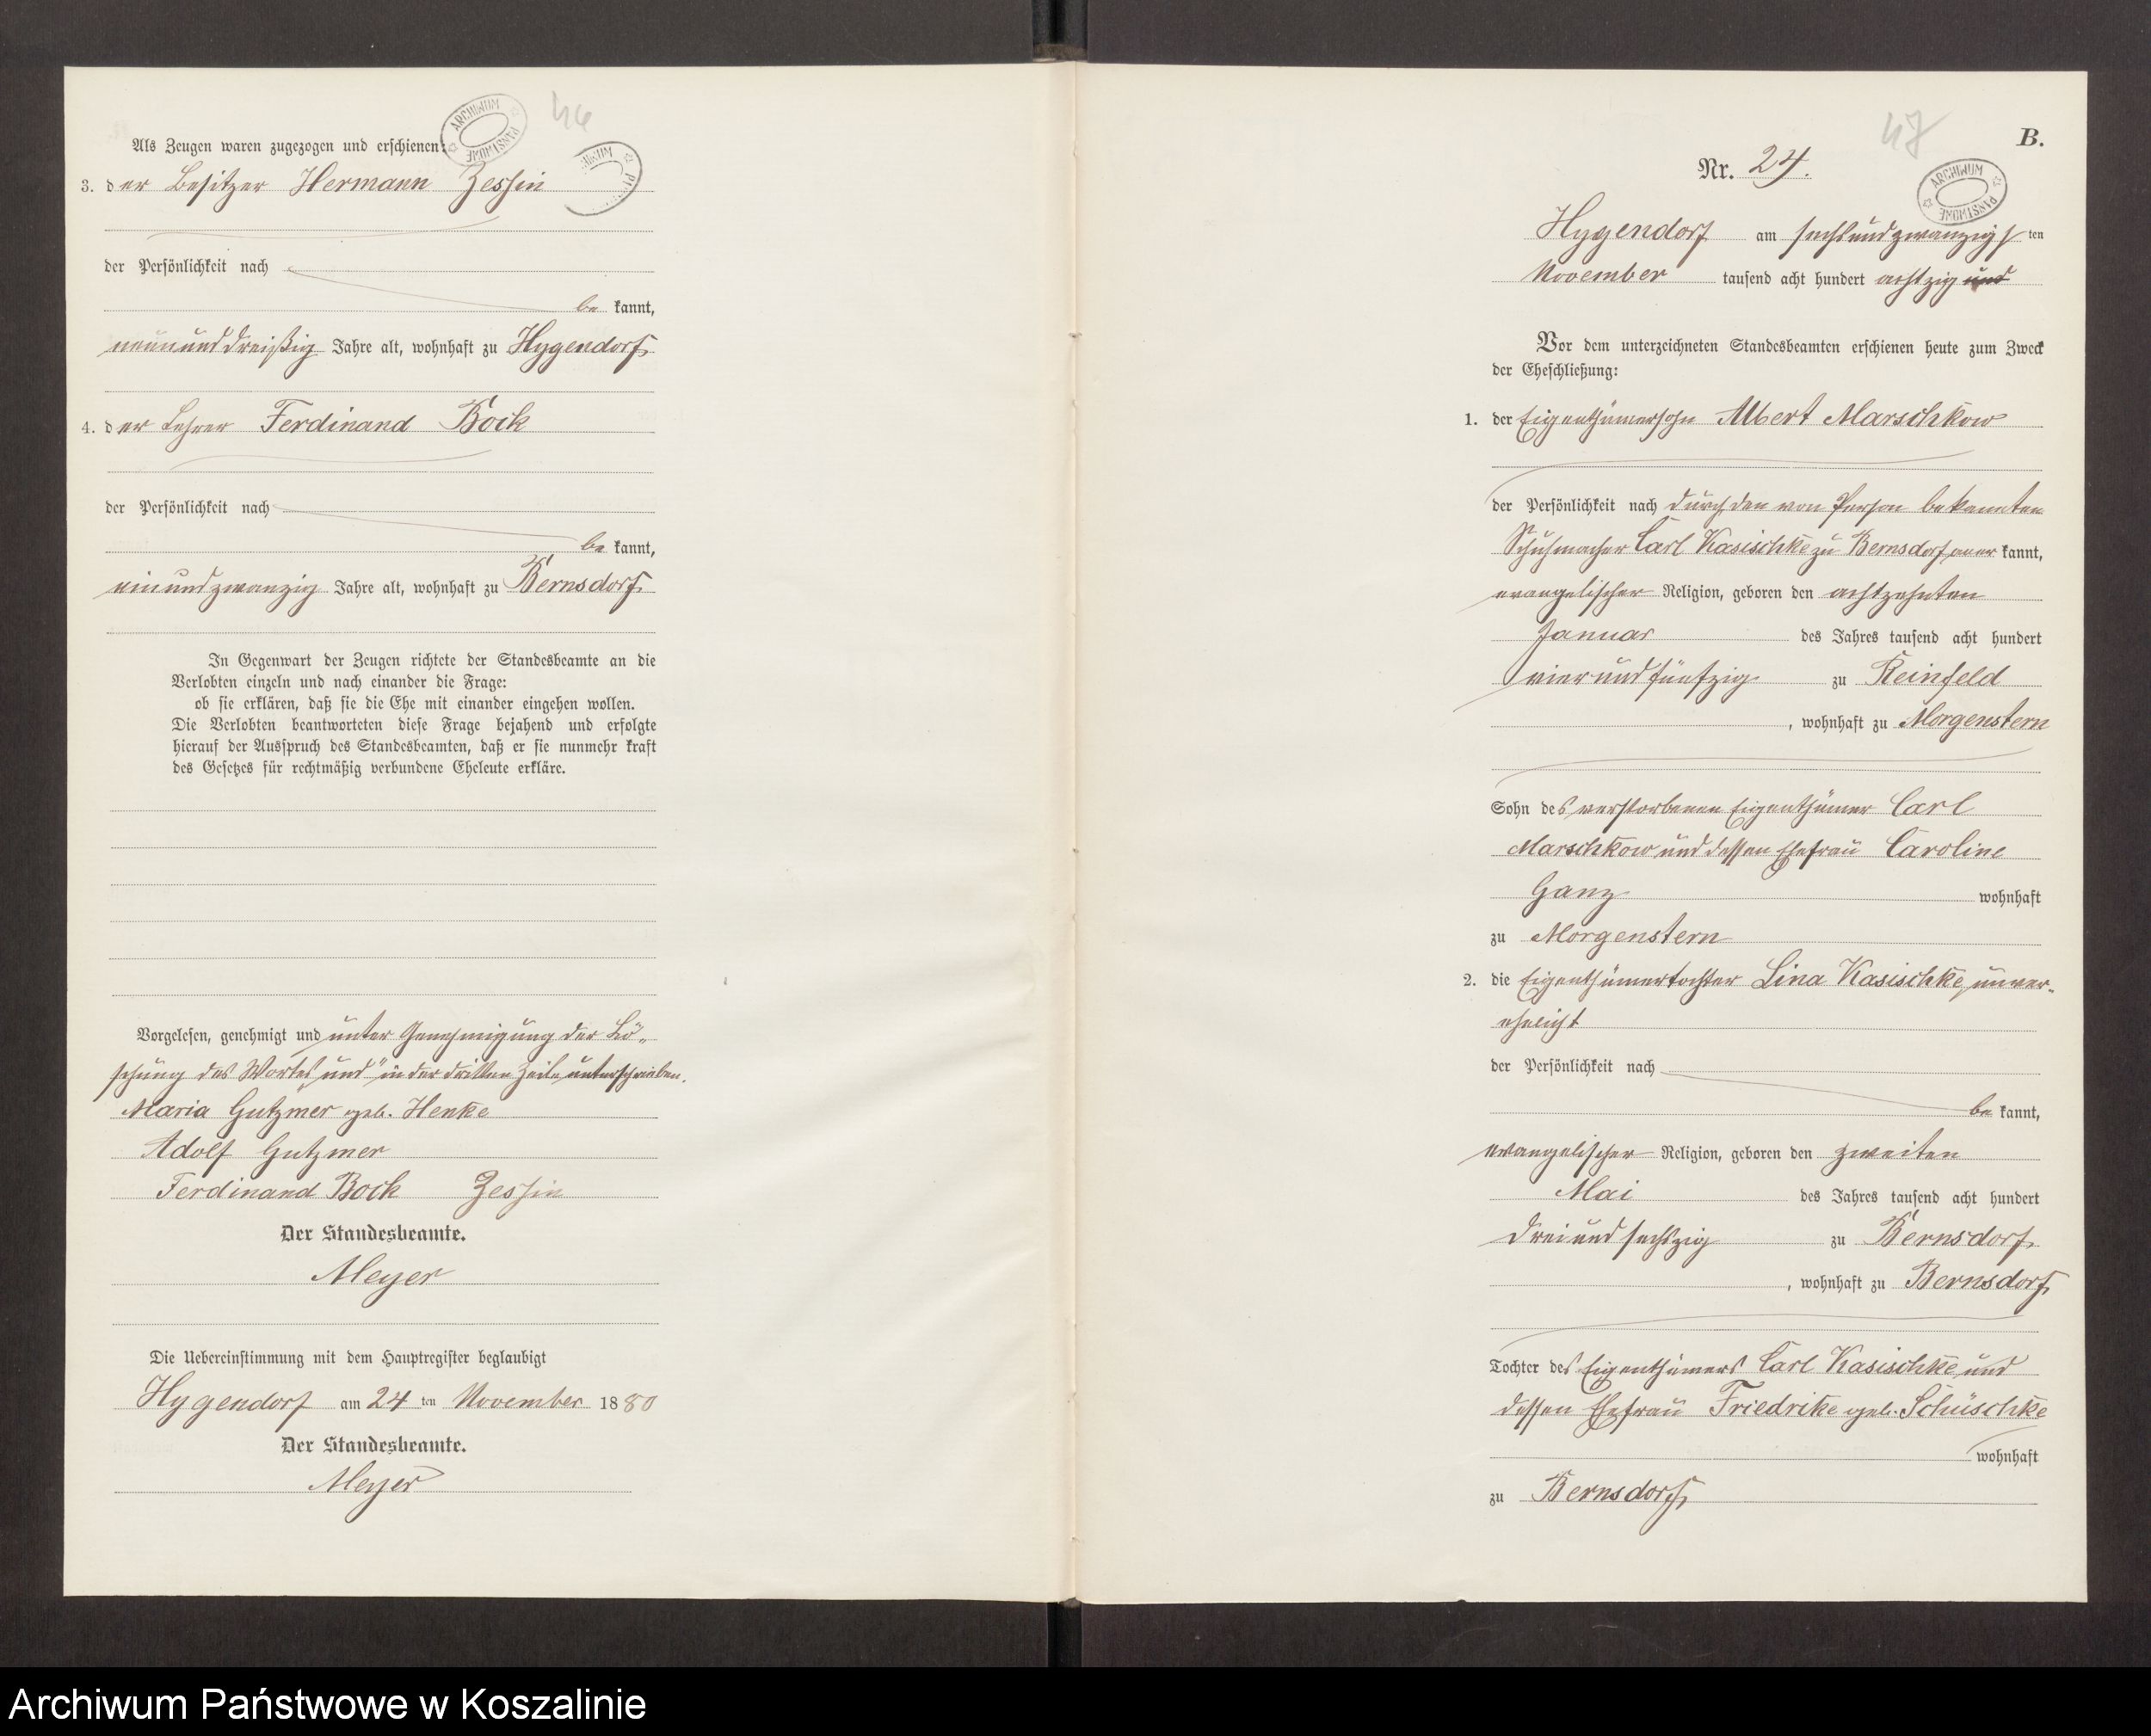 46
Als Zeugen waren zugezogen und erschienen:
ARCHIWUM PAŃSTWOWE
3. der Besitzer Hermann Zessin
der Persönlichkeit nach
be kannt,
neunund dreißig Jahre alt, wohnhaft zu Hygendorf
4. der Lehrer Ferdinand Bock
der Persönlichkeit nach
be kannt,
einundzwanzig Jahre alt, wohnhaft zu Bernsdorf
In Gegenwart der Zeugen richtete der Standesbeamte an die
Verlobten einzeln und nach einander die Frage:
ob sie erklären, daß sie die Ehe mit einander eingehen wollen.
Die Verlobten beantworteten diese Frage bejahend und erfolgte
hierauf der Ausspruch des Standesbeamten, daß er sie nunmehr kraft
des Gesetzes für rechtmäßig verbundene Eheleute erkläre.
Vorgelesen, genehmigt und unter Genehmigung der Lö-
schung des Wortes „und" in der dritten Zeile unterschrieben.
Maria Gutzmer geb. Henke
Adolf Gutzmer
Ferdinand Bock Zessin
Der Standesbeamte.
Meyer
Die Uebereinstimmung mit dem Hauptregister beglaubigt
Hygendorf am 24 ten November 1880
Der Standesbeamte.
Meyer
47
B.
Nr. 24.
ARCHIWUM PAŃSTWOWE
Hygendorf am sechsundzwanzigsten
November tausend acht hundert achtzig und
Vor dem unterzeichneten Standesbeamten erschienen heute zum Zweck
der Eheschließung:
1. der Eigenthümersohn Albert Marschkow
der Persönlichkeit nach durch den von Person bekannten
Schuhmacher Carl Kasischke zu Bernsdorf aner kannt,
evangelischer Religion, geboren den achtzehnten
Januar des Jahres tausend acht hundert
vier und fünfzig zu Reinfeld
, wohnhaft zu Morgenstern
Sohn des verstorbenen Eigenthümer Carl
Marschkow und dessen Ehefrau Caroline
Ganz wohnhaft
zu Morgenstern
2. die Eigenthümertochter Lina Kasischke, unver-
ehelicht
der Persönlichkeit nach
be kannt,
evangelischer Religion, geboren den zweiten
Mai des Jahres tausend acht hundert
drei und sechszig zu Bernsdorf,
, wohnhaft zu Bernsdorf,
Tochter des Eigenthümers Carl Kasischke und
dessen Ehefrau Friedrike geb. Schüschke
wohnhaft
zu Bernsdorf,
Archiwum Państwowe w Koszalinie